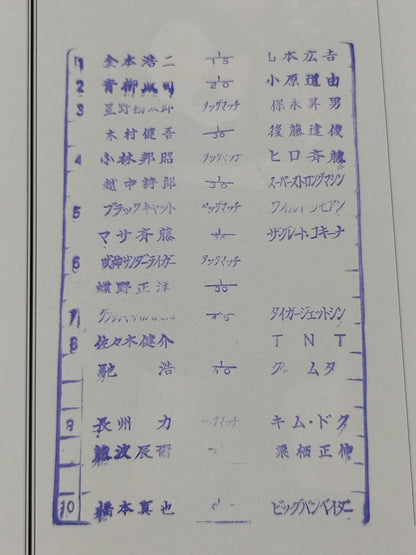 1 金本浩二 1/15 山本広吉
2 青柳政司 1/20 小原道由
3 星野勘太郎 タッグマッチ 保永昇男
木村健吾 1/30 後藤達俊
4 小林邦昭 タッグマッチ ヒロ斉藤
越中詩郎 1/30 スーパーストロングマシン
5 ブラックキャット タッグマッチ ワイルド
マサ斉藤 ザ・グレート・コキーナ
6 獣神サンダーライガー タッグマッチ
蝶野正洋 1/30
7 タイガージェットシン
8 佐々木健介 TNT
馳 浩 1/30 グレートムタ
9 長州 力 タッグマッチ キム・ドク
藤波辰爾 栗栖正伸
10 橋本真也 ビッグバンベイダー